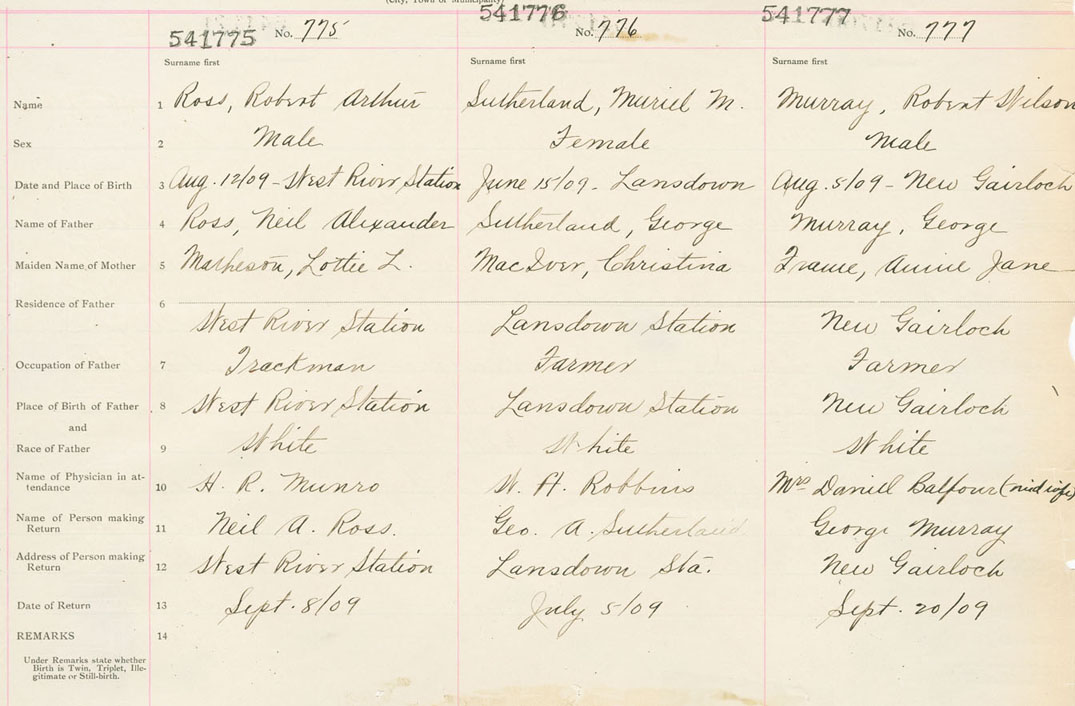 (City, Town or Municipality)
541775 No. 775 541776 No. 776 541777 No. 777
Surname first Surname first Surname first
Name 1 Ross, Robert Arthur Sutherland, Muriel M. Murray, Robert Wilson
Sex 2 Male Female Male
Date and Place of Birth 3 Aug. 12/09 - West River Station June 15/09 - Lansdown Aug. 5/09 - New Gairloch
Name of Father 4 Ross, Neil Alexander Sutherland, George Murray, George
Maiden Name of Mother 5 Matheson, Lottie L. MacIver, Christina Frame, Annie Jane
Residence of Father 6
West River Station Lansdown Station New Gairloch
Occupation of Father 7 Trackman Farmer Farmer
Place of Birth of Father 8 West River Station Lansdown Station New Gairloch
and
Race of Father 9 White White White
Name of Physician in at-
tendance 10 H. R. Munro W. H. Robbins Mrs Daniel Balfour (midwife)
Name of Person making
Return 11 Neil A. Ross. Geo. A. Sutherland George Murray
Address of Person making
Return 12 West River Station Lansdown Sta. New Gairloch
Date of Return 13 Sept. 8/09 July 5/09 Sept. 20/09
REMARKS 14
Under Remarks state whether
Birth is Twin, Triplet, Ille-
gitimate or Still-birth.